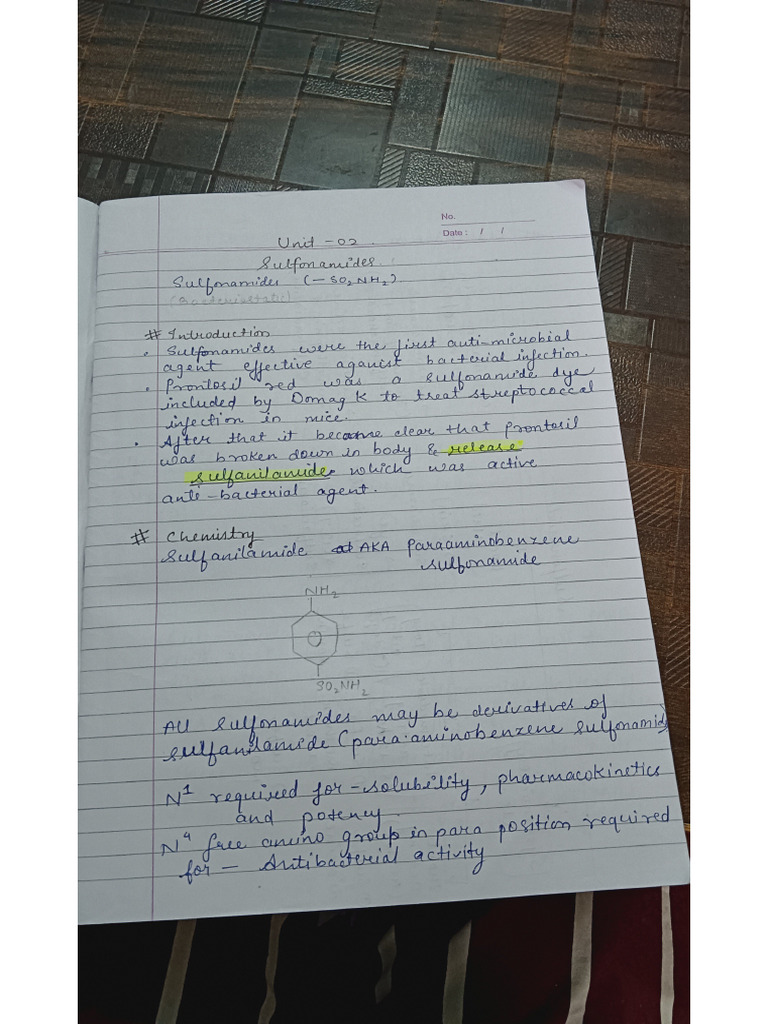 No.
Date : / /
Unit - 02.
Sulfonamides.
Sulfonamides (-SO2NH2)
(Bacteriostatic)
# Introduction
• Sulfonamides were the first anti-microbial
agent effective aganist bacterial infection.
• Prontosil red was a sulfonamide dye
included by Domag K to treat streptococcal
infection in mice.
• After that it became clear that prontosil
was broken down in body & release
sulfanilamide which was active
anti-bacterial agent.
# Chemistry
Sulfanilamide AKA paraaminobenzene
sulfonamide
NH2
SO2NH2
All sulfonamides may be derivatives of
sulfanilamide (para.aminobenzene sulfonamid)
N1 required for - solubility, pharmacokinetics
and potency.
N4 free amino group in para position required
for - Antibacterial activity